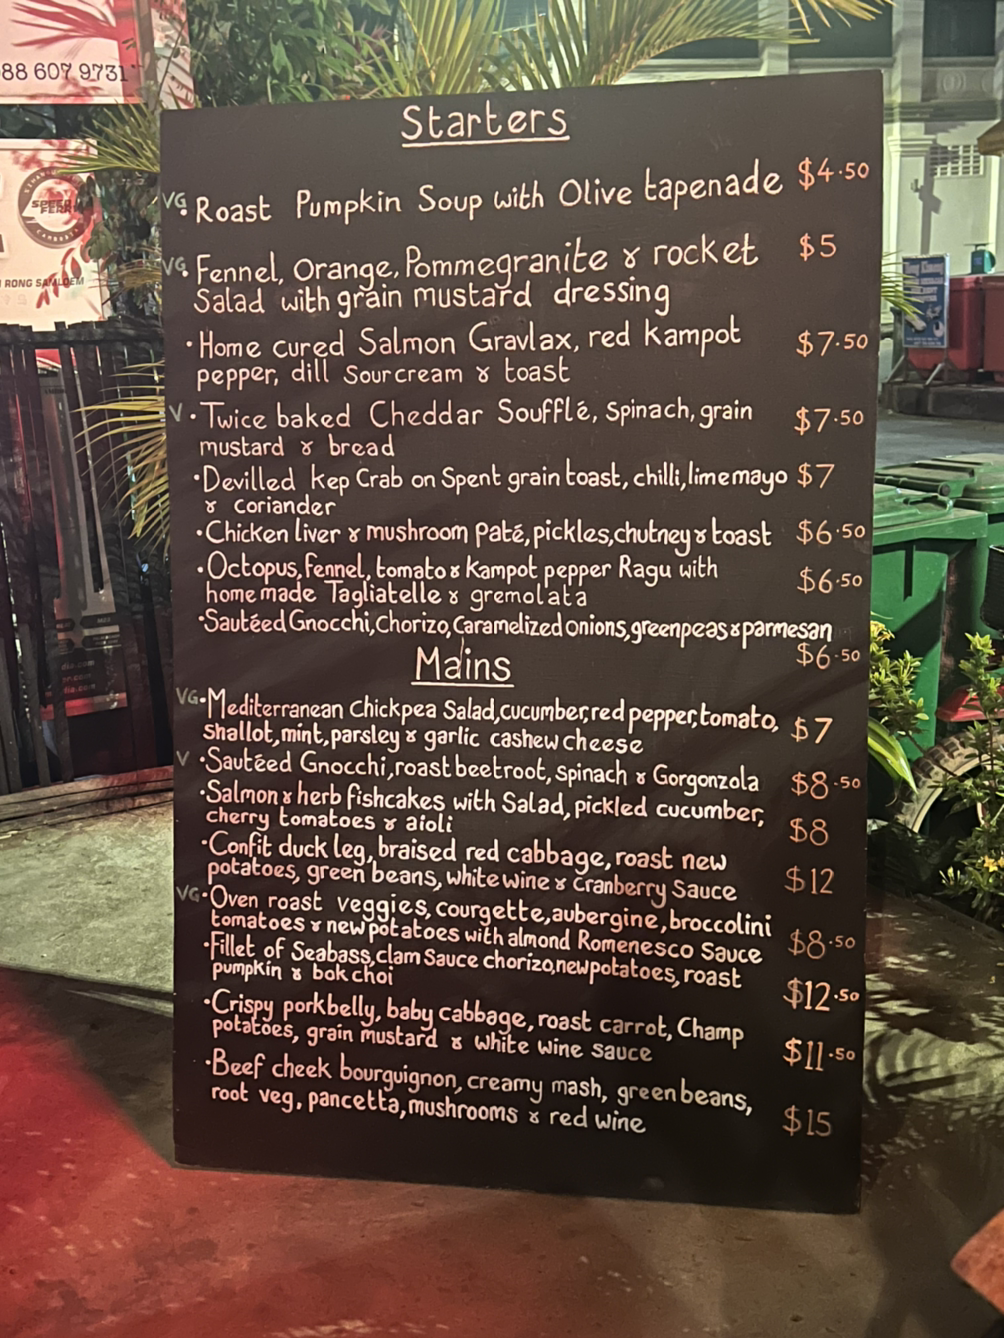 88 607 9731
SPEED FERRY
CAMBODIA
RONG SAMLOEM
Starters
VG. Roast Pumpkin Soup with Olive tapenade $4.50
VG. Fennel, Orange, Pommegranite & rocket $5
Salad with grain mustard dressing
• Home cured Salmon Gravlax, red Kampot $7.50
pepper, dill Sour cream & toast
V • Twice baked Cheddar Soufflé, Spinach, grain $7.50
mustard & bread
• Devilled Kep Crab on Spent grain toast, chilli, lime mayo $7
& coriander
• Chicken liver & mushroom Paté, pickles, chutney & toast $6.50
• Octopus, Fennel, tomato & Kampot pepper Ragu with $6.50
home made Tagliatelle & gremolata
• Sautéed Gnocchi, Chorizo, Caramelized onions, green peas & parmesan
$6.50
Mains
VG • Mediterranean Chickpea Salad, cucumber, red pepper, tomato, $7
shallot, mint, parsley & garlic cashew cheese
V • Sautéed Gnocchi, roast beetroot, spinach & Gorgonzola $8.50
• Salmon & herb fishcakes with Salad, pickled cucumber,
cherry tomatoes & aioli $8
• Confit duck leg, braised red cabbage, roast new
potatoes, green beans, white wine & Cranberry Sauce $12
VG • Oven roast veggies, courgette, aubergine, broccolini
tomatoes & new potatoes with almond Romenesco Sauce $8.50
• Fillet of Seabass, clam Sauce chorizo, new potatoes, roast
pumpkin & bok choi $12.50
• Crispy porkbelly, baby cabbage, roast carrot, Champ
potatoes, grain mustard & white wine sauce $11.50
• Beef cheek bourguignon, creamy mash, green beans,
root veg, pancetta, mushrooms & red wine $15